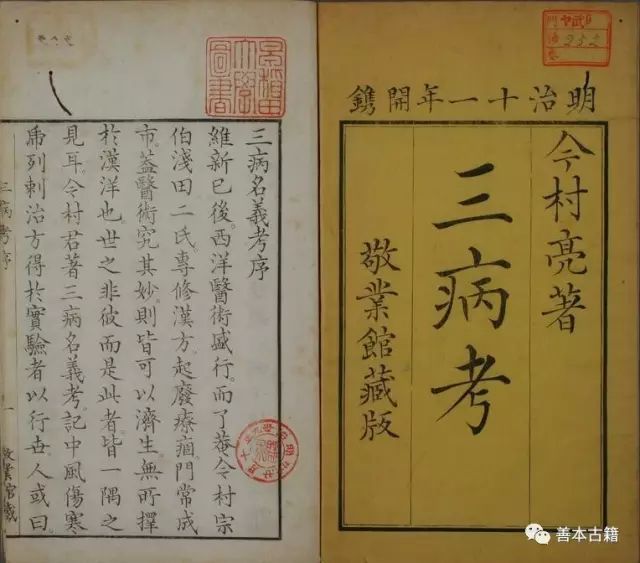 明治十一年開鐫
今村亮著
三病考
敬業館藏版
三病名義考序
維新已後。西洋醫術盛行。而了菴今村宗
伯淺田二氏。專修漢方。起廢療痼。門常成
市。蓋醫術究其妙。則皆可以濟生。無所擇
於漢洋也。世之非彼而是此者。皆一隅之
見耳。今村君著三病名義考。記中風傷寒
焉。列刺治方得於實驗者。以行世。人或曰。
三病考序
一
敬業館藏
善本古籍